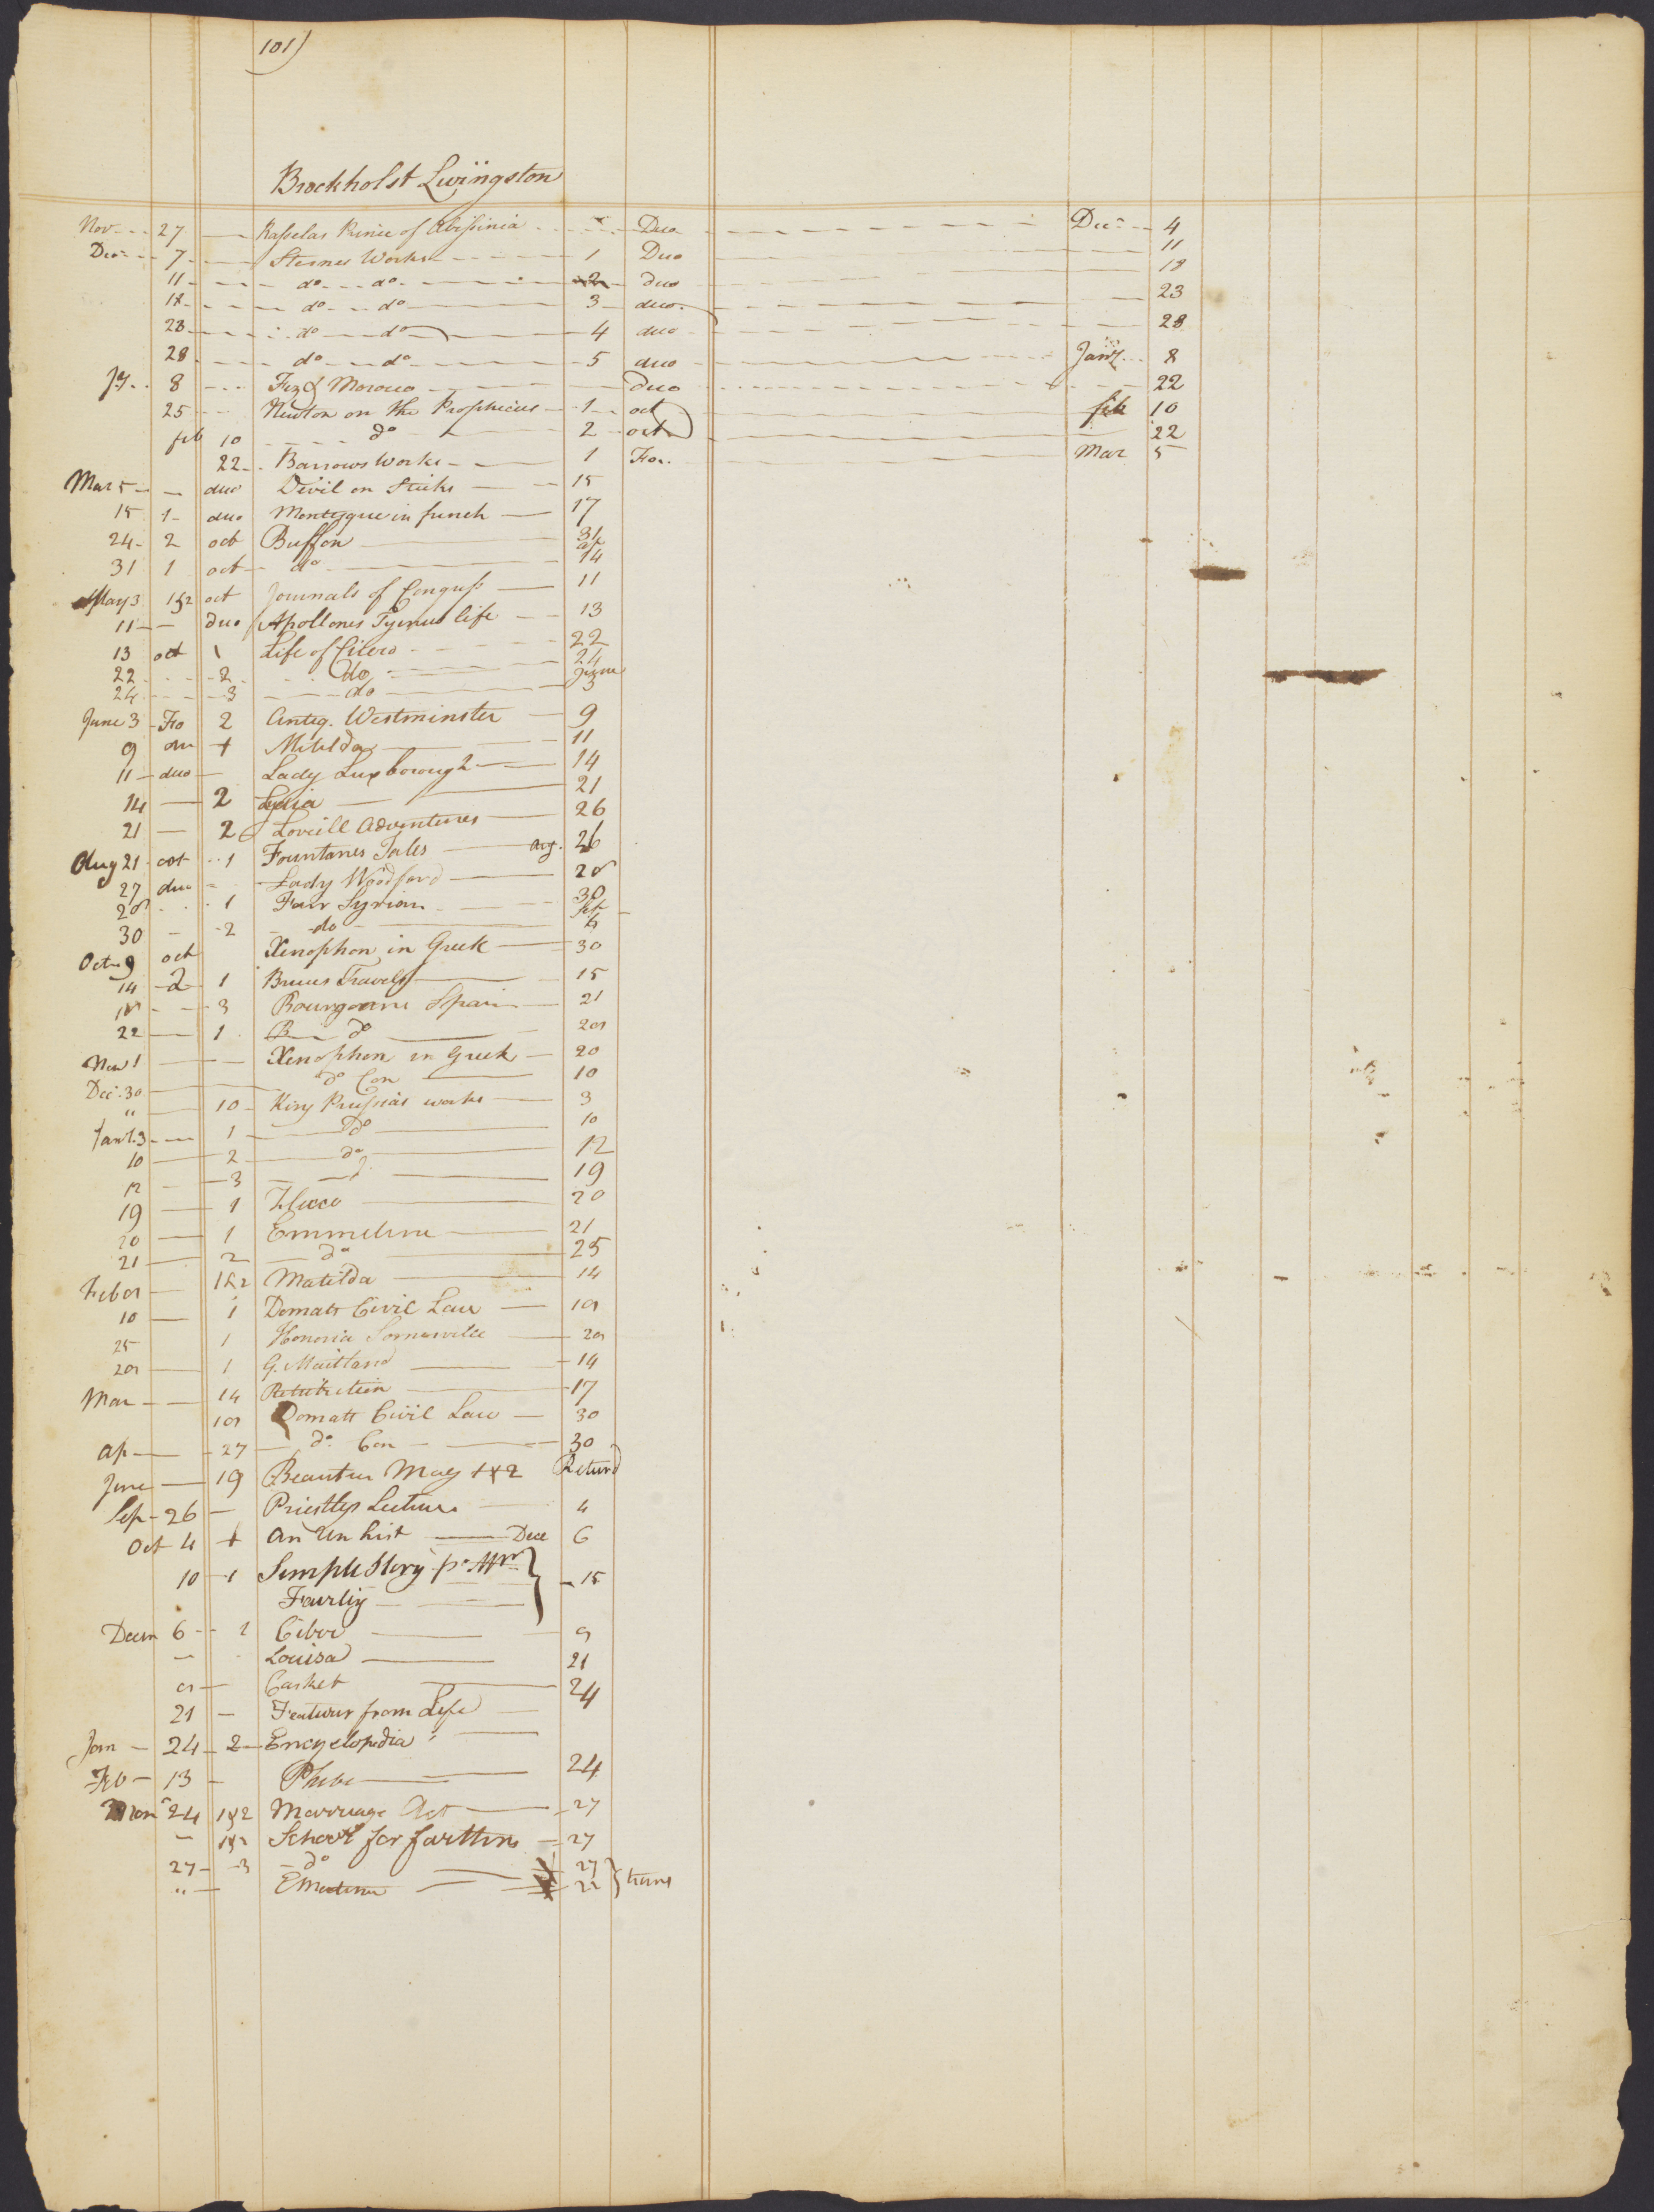 101)
Brockholst Livingston
Nov 27 Rasselas Prince of Abissinia Duo Dec 4
Dec 7 Sternes Works 1 Duo 11
11 do do 2 duo 18
18 do do 3 duo 23
23 do do 4 duo 28
28 do do 5 duo Jany 8
Jy 8 Fez & Morocco duo 22
25 Newton on the Prophicies 1 oct feb 10
feb 10 do 2 oct 22
22 Barrows Works 1 Fo. Mar 5
Mar 5 duo Divil on Sticks 15
15 1 duo Montesque in french 17
24 2 oct Buffon 31
31 1 oct do ap 14
May 3 1&2 oct Journals of Congress 11
11 duo Apollones Tyenus life 13
13 oct 1 Life of Cicero 22
22 2 do 24
24 3 do June 3
June 3 Fo 2 Antiq. Westminster 9
9 1 Matilda 11
11 duo Lady Luxborough 14
14 2 21
21 2 Loviell Adventures 26
Aug 21 oct 1 Fountanes Tales aug. 26
27 duo Lady Woodford 28
28 1 Fair Syrian 30
30 2 do
Oct 9 oct Xenophon in Greek 30
14 2 1 Bruces Travels 15
3 Bourgoanne Spain 21
22 1 B do 29
Nov 1 Xenophon in Greek 20
Dec. 30 do Con 10
" 10 King Prussias works 3
Jany. 3 1 do 10
10 2 do 12
12 3 19
19 1 Zeluco 20
20 1 Emmeline 21
21 2 do 25
Feb 9 1&2 Matilda 14
10 1 Domats Civil Law 19
25 1 Honoria Somerville 29
29 1 G. Maitland 14
Mar 14 Retribution 17
19 Domatt Civil Law 30
Ap 27 do Con 30
June 19 Beauties Mag 1&2 Returd
Sep 26 Priestlys Lectures 4
Oct 4 1 An Un hist Dece 6
10 1 Simple Story 15
Fairliy
Decem 6 1 9
Louisa 21
9 Casket 24
21 Featurs from Life
Jan 24 2 Encyclopedia
Feb 13 Phebe 24
Mar 24 1&2 Marriage Act 27
1&2 School for farthers 27
27 3 do 27
" Emmeline 22